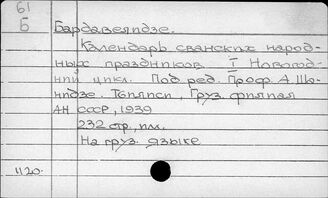 61
Б
Бардавелидзе.
Календарь сванских народ-
ных праздников. I Новогод-
ний цикл. Под ред. Проф. А. Ша-
нидзе. Тбилиси, Груз. филиал
АН СССР, 1939
232 стр., илл.
На груз. языке
1120.